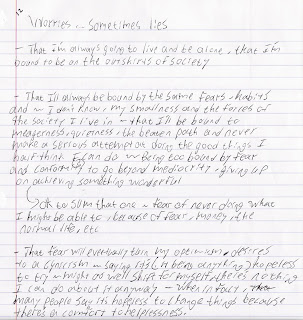 Worries - Sometimes lies
- That I'm always going to live and be alone, that I'm
bound to be on the outskirts of society
- That I'll always be bound by the same fears, habits
and - I don't know, my smallness and the forces of
the society I live in - that I'll be bound to
meagerness, quietness, the beaten path and never
make a serious attempt on doing the good things I
half think I can do - Being too bound by fear
and conformity to go beyond mediocrity - giving up
on achieving something wonderful
Ok to sum that one - fear of never doing what
I might be able to, because of fear, money, the
normal life, etc
- That fear will eventually turn my optimism, desires
to a cynicism - saying is hopeless
to try - might as well shift for myself, theres nothing
I can do about it anyway - when in fact,
many people say its hopeless to change things because
theres a comfort to helplessness.